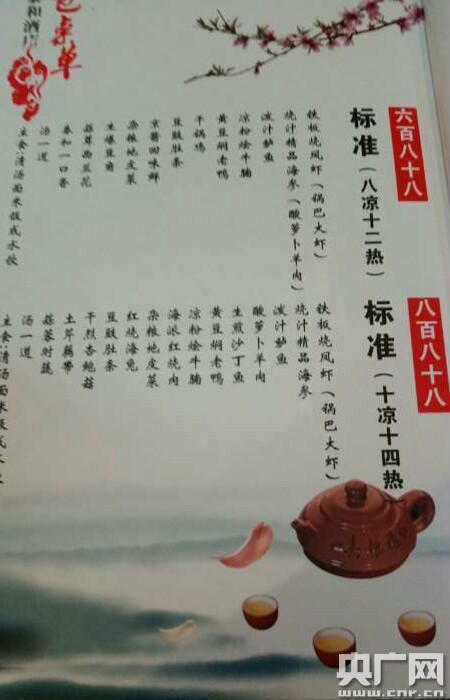 泰和酒店
包桌单
六百八十八
标准（八凉十二热）
铁板烧凤虾（锅巴大虾）
烧汁精品海参（酸萝卜羊肉）
泼汁鲈鱼
凉粉烩牛腩
黄豆焖老鸭
干锅鸡
豉豉肚条
京酱回味鲜
杂粮地皮菜
生爆豆角
蒜茸西兰花
泰和一口香
汤一道
主食：清汤面米饭或水饺
八百八十八
标准（十凉十四热）
铁板烧凤虾（锅巴大虾）
烧汁精品海参
泼汁鱼
酸萝卜羊肉
生煎沙丁鱼
黄豆焖老鸭
凉粉烩牛腩
海派红烧肉
杂粮地皮菜
红烧海兔
豆豉肚条
干烈杏鲍菇
土芹藕带
蒜蓉时蔬
汤一道
主食：清汤面米饭或水
央广网
www.cnr.cn